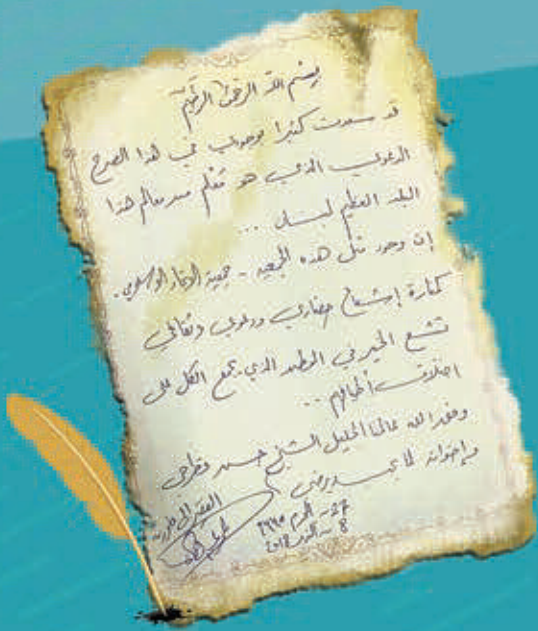 بسم الله الرحمن الرحيم
قد سعدت كثيرا بوجودي في هذا الصرح
الدعوي الذي هو معلم من معالم هذا
البلد العظيم لبنان ...
إن وجود مثل هذه الجمعية - جمعية الاتحاد الإسلامي -
كمنارة إشعاع حضاري ودعوي وثقافي
تشع الخير في الوطن الذي يجمع الكل على
اختلاف أطيافهم ..
وفق الله عالمنا الجليل الشيخ حسن قطرجي
وإخوانه لما يحب ويرضى
الفقير إلى
27 - محرم
8 -